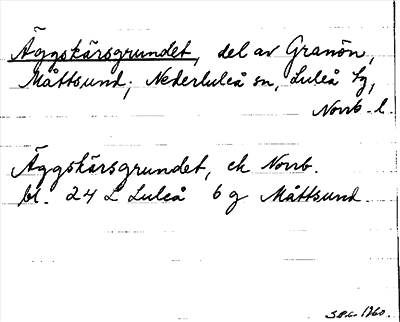 Äggskärsgrundet, del av Granön,
Måttsund, Nederluleå sn, Luleå lg,
Norrb. l.
Äggskärsgrundet, ek Norrb.
bl. 24 L Luleå 6 g Måttsund.
1960.